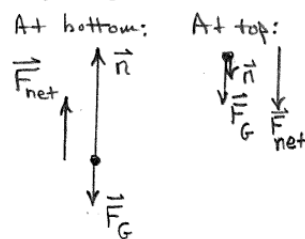 At bottom:
F⃗net
n⃗
F⃗G
At top:
n⃗
F⃗G
F⃗net